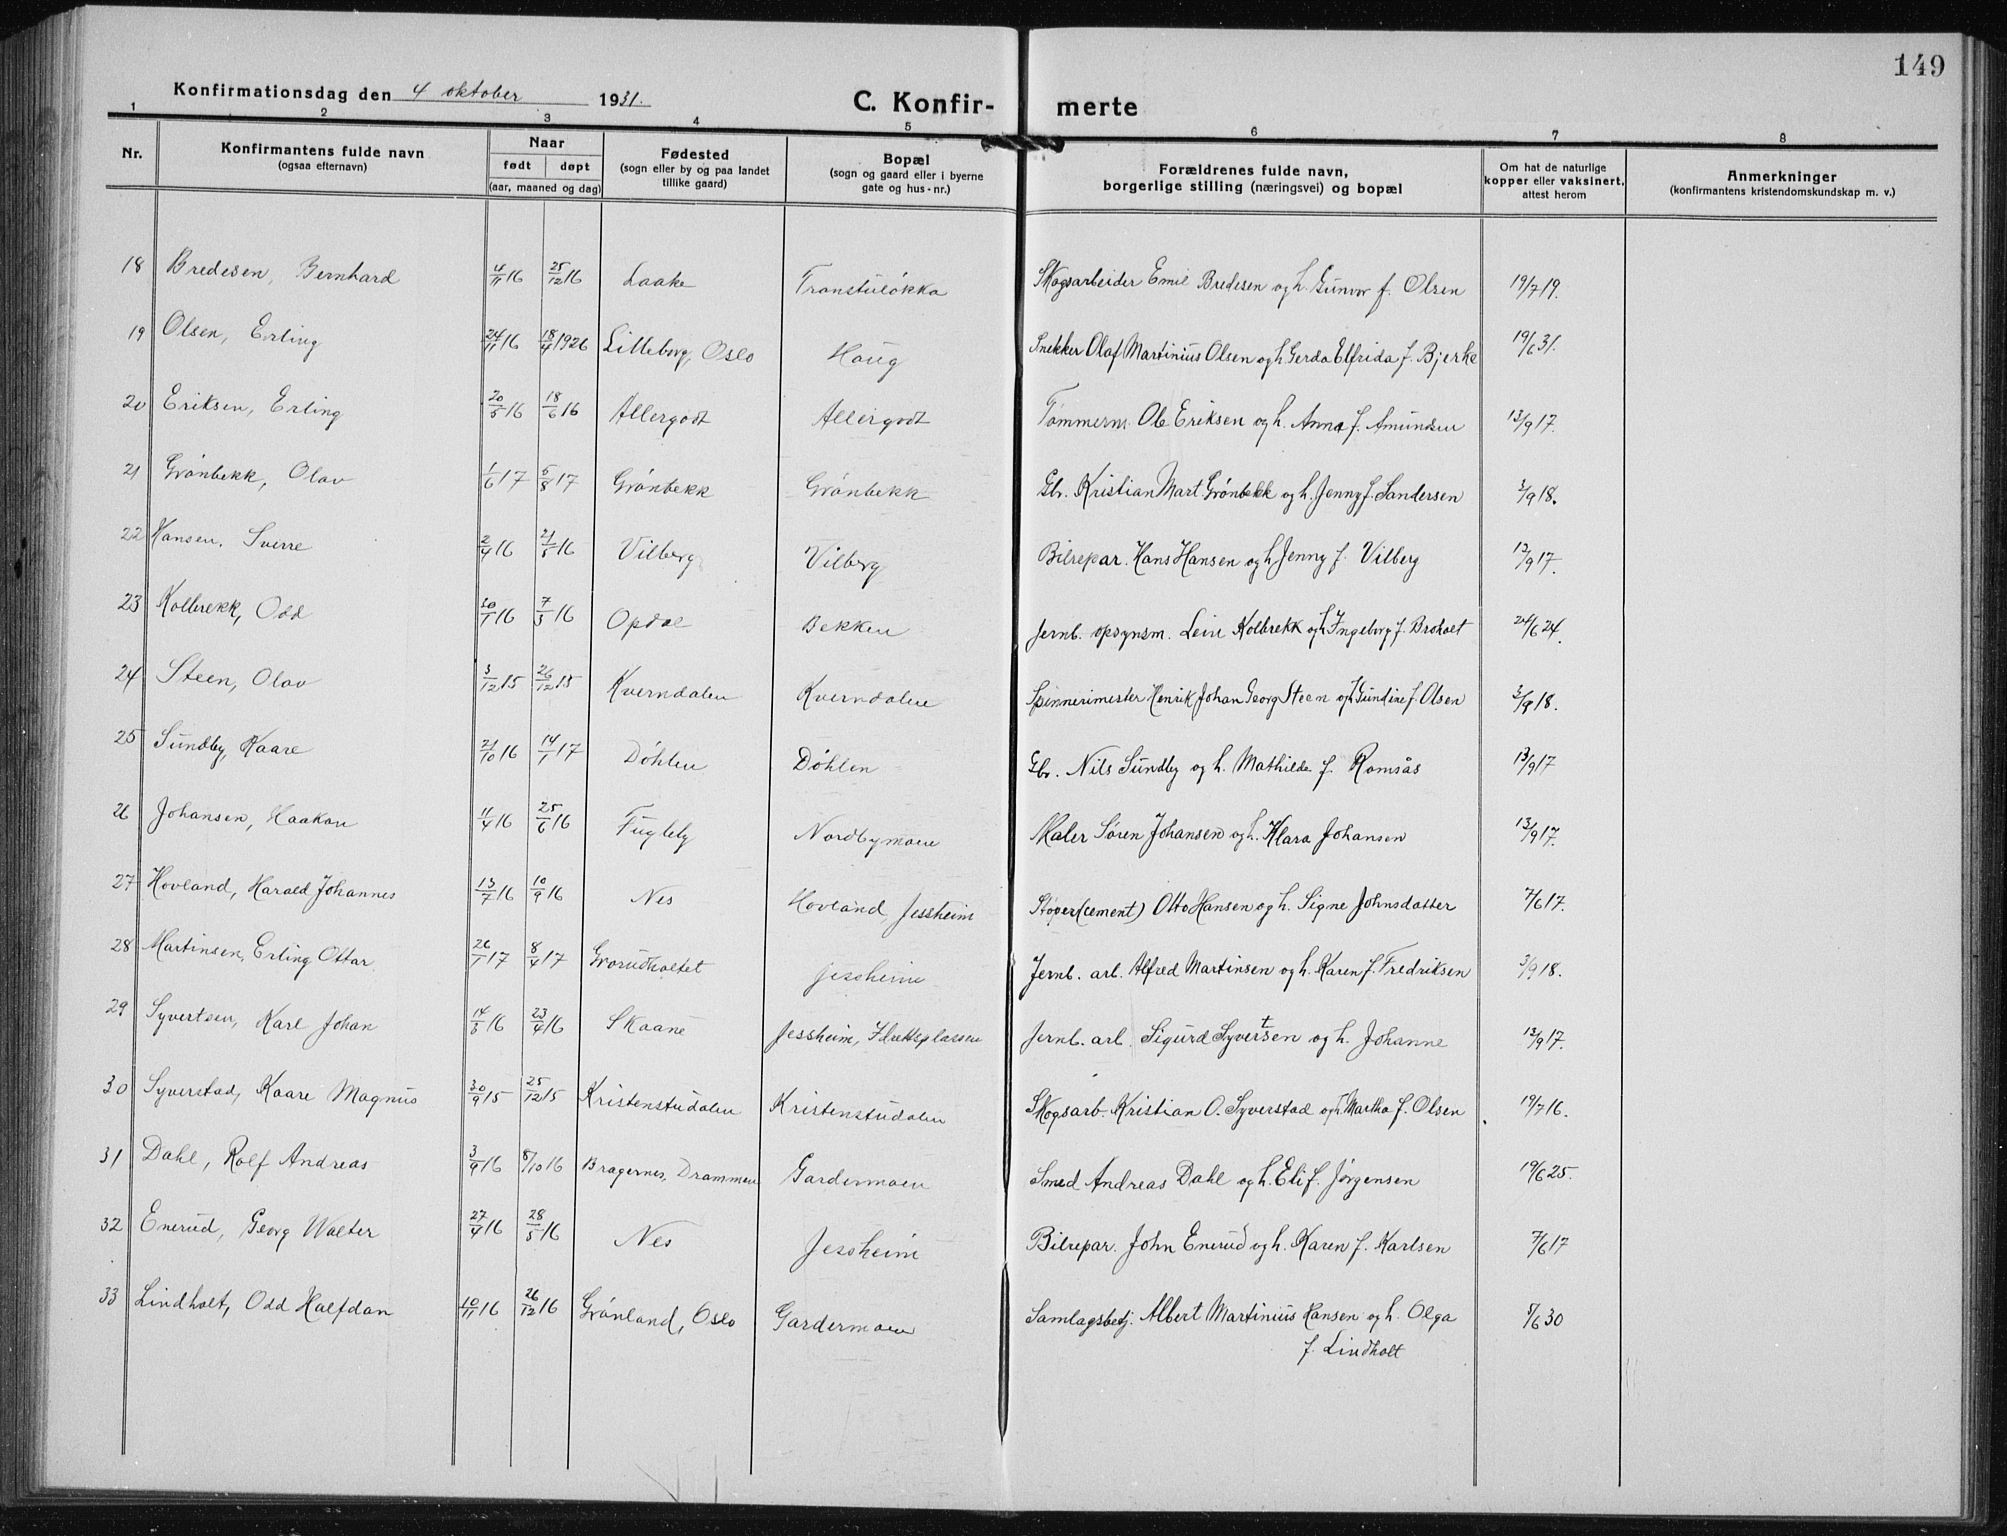 149
Konfirmationsdag den 4 oktober 1931.
C. Konfir- merte
1 2 3 4 5 6 7 8
Nr.
Konfirmantens fulde navn
(ogsaa efternavn)
Naar
født døpt
(aar, maaned og dag)
Fødested
(sogn eller by og paa landet
tillike gaard)
Bopæl
(sogn og gaard eller i byerne
gate og hus-nr.)
Forældrenes fulde navn,
borgerlige stilling (næringsvei) og bopæl
Om hat de naturlige
kopper eller vaksinert,
attest herom
Anmerkninger
(konfirmantens kristendomskundskap m. v.)
18 Bredesen, Bernhard 4/11 16 25/12 16 Laake Transtuløkka Skogsarbeider Emil Bredesen og h. Gunvor f. Olsen 19/7 19.
19 Olsen, Erling 24/11 16 18/4 1926 Lilleborg, Oslo Haug Snekker Olaf Martinius Olsen og h. Gerda Elfrida f. Bjerke 19/6 31.
20 Eriksen, Erling 20/5 16 18/6 16 Allergodt Allergodt Tømmerm. Ole Eriksen og h. Anna f. Amundsen 13/9 17.
21 Grønbekk, Olav 1/6 17 5/8 17 Grønbekk Grønbekk Gbr. Kristian Mart. Grønbekk og h. Jenny f. Sandersen 3/9 18.
22 Hansen, Sverre 2/4 16 21/5 16 Vilberg Vilberg Bilrepar. Hans Hansen og h Jenny f. Vilberg 13/9 17.
23 Kolbrekk, Odd 30/1 16 7/3 16 Opdal Bekken Jernb. opsynsm. Leiv Kolbrekk og h Ingeborg f. Broholt 24/6 24.
24 Steen, Olav 3/12 15 26/12 15 Kverndalen Kverndalen Spinnerimester Henrik Johan Georg Steen og h Gundine f. Olsen 3/9 18.
25 Sundby, Kaare 21/10 16 14/1 17 Døhlen Døhlen Gbr. Nils Sundby og h. Mathilde f. Romsås 13/9 17
26 Johansen, Haakon 11/4 16 25/6 16 Fugleby Nordbymoen Maler Søren Johansen og h. Klara Johansen 13/9 17.
27 Hovland, Harald Johannes 13/7 16 10/9 16 Nes Hovland, Jessheim Støper (cement) Otto Hansen og h. Signe Johnsdatter 7/6 17.
28 Martinsen, Erling Ottar 26/1 17 8/4 17 Grorudholtet Jessheim Jernb. arb. Alfred Martinsen og h. Karen f. Fredriksen 3/9 18.
29 Syvertsen, Karl Johan 14/3 16 23/4 16 Skaane Jessheim, Idrettsplassen Jernb. arb. Sigurd Syvertsen og h. Johanne 13/9 17.
30 Syverstad, Kaare Magnus 30/9 15 25/12 15 Kristenstudalen Kristenstudalen Skogsarb. Kristian O. Syverstad og h Martha f. Olsen 19/7 16.
31 Dahl, Rolf Andreas 3/9 16 8/10 16 Bragernes, Drammen Gardermoen Smed Andreas Dahl og h. Eli f. Jørgensen 19/6 25.
32 Enerud, Georg Walter 27/4 16 28/5 16 Nes Jessheim Bilrepar. John Enerud og h. Karen f. Karlsen 7/6 17
33 Lindholt, Odd Halfdan 10/11 16 26/12 16 Grønland, Oslo Gardermoen Samlagsbestj. Albert Martinius Hansen og h. Olga 5/6 30
f. Lindholt